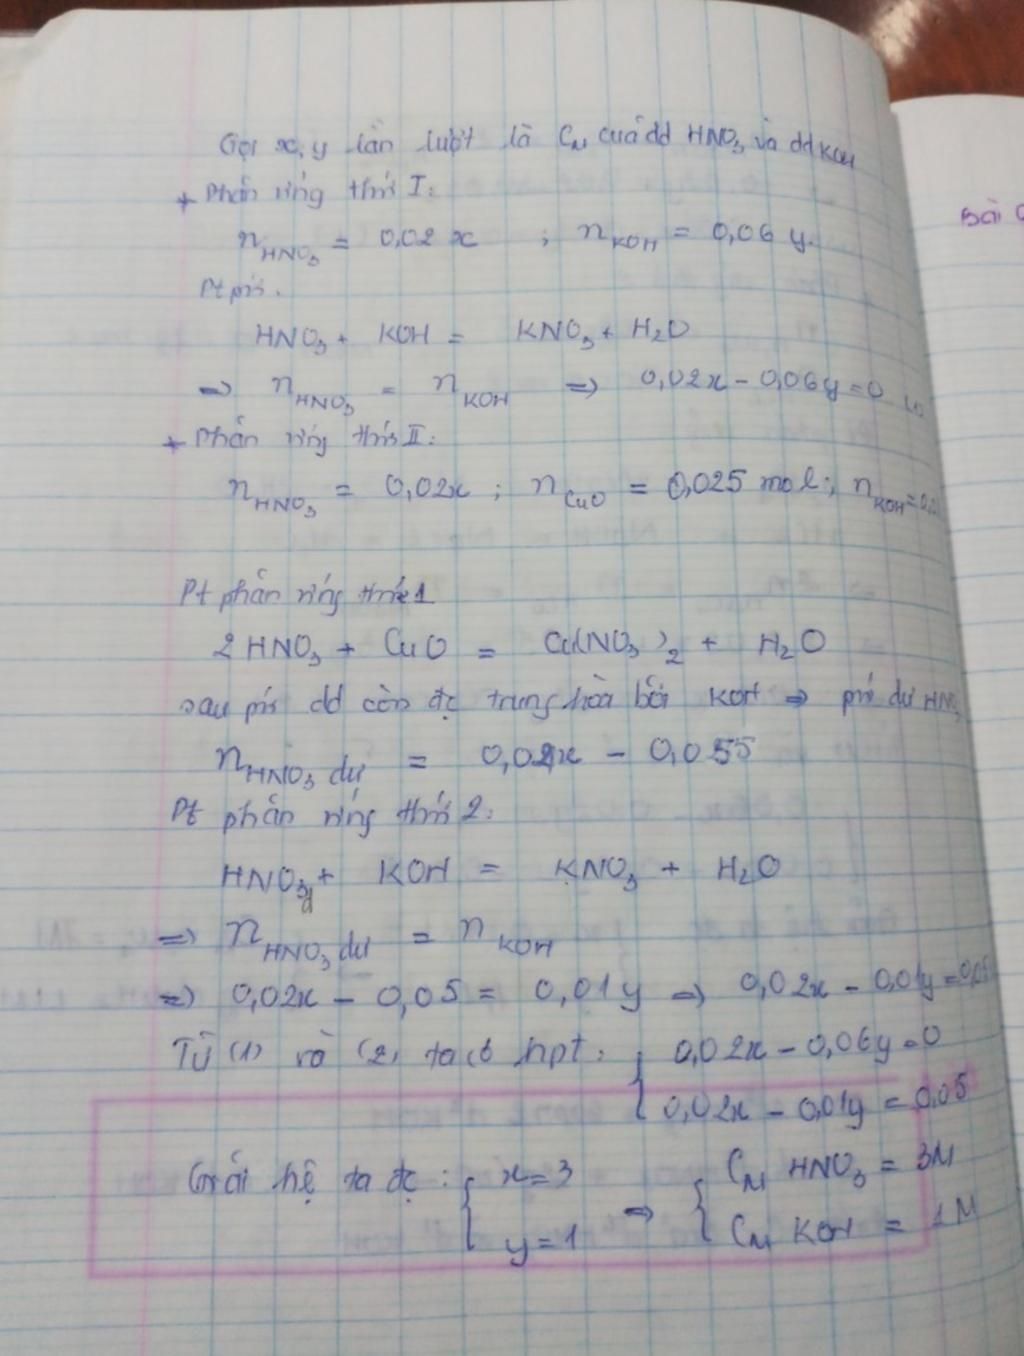 Gọi x, y lần lượt là CM của dd HNO3 và dd KOH
+ Phản ứng thứ I:
nHNO3 = 0,02 x ; nKOH = 0,06 y.
Ptpứ.
HNO3 + KOH = KNO3 + H2O
=> nHNO3 = nKOH => 0,02x - 0,06y = 0
+ Phản ứng thứ II:
nHNO3 = 0,02x ; nCuO = 0,025 mol ; nKOH = 0,01
Pt phản ứng thứ 1
2 HNO3 + CuO = Cu(NO3)2 + H2O
sau pứ dd còn đc trung hòa bởi KOH => pứ dư HNO3
nHNO3 dư = 0,02x - 0,055
Pt phản ứng thứ 2:
HNO3d + KOH = KNO3 + H2O
=> nHNO3 dư = nKOH
=> 0,02x - 0,05 = 0,01y => 0,02x - 0,01y = 0,05
Từ (1) và (2) ta có hpt: { 0,02x - 0,06y = 0
0,02x - 0,01y = 0,05
Giải hệ ta đc : { x = 3 => { CM HNO3 = 3M
y = 1 CM KOH = 1M
Bài